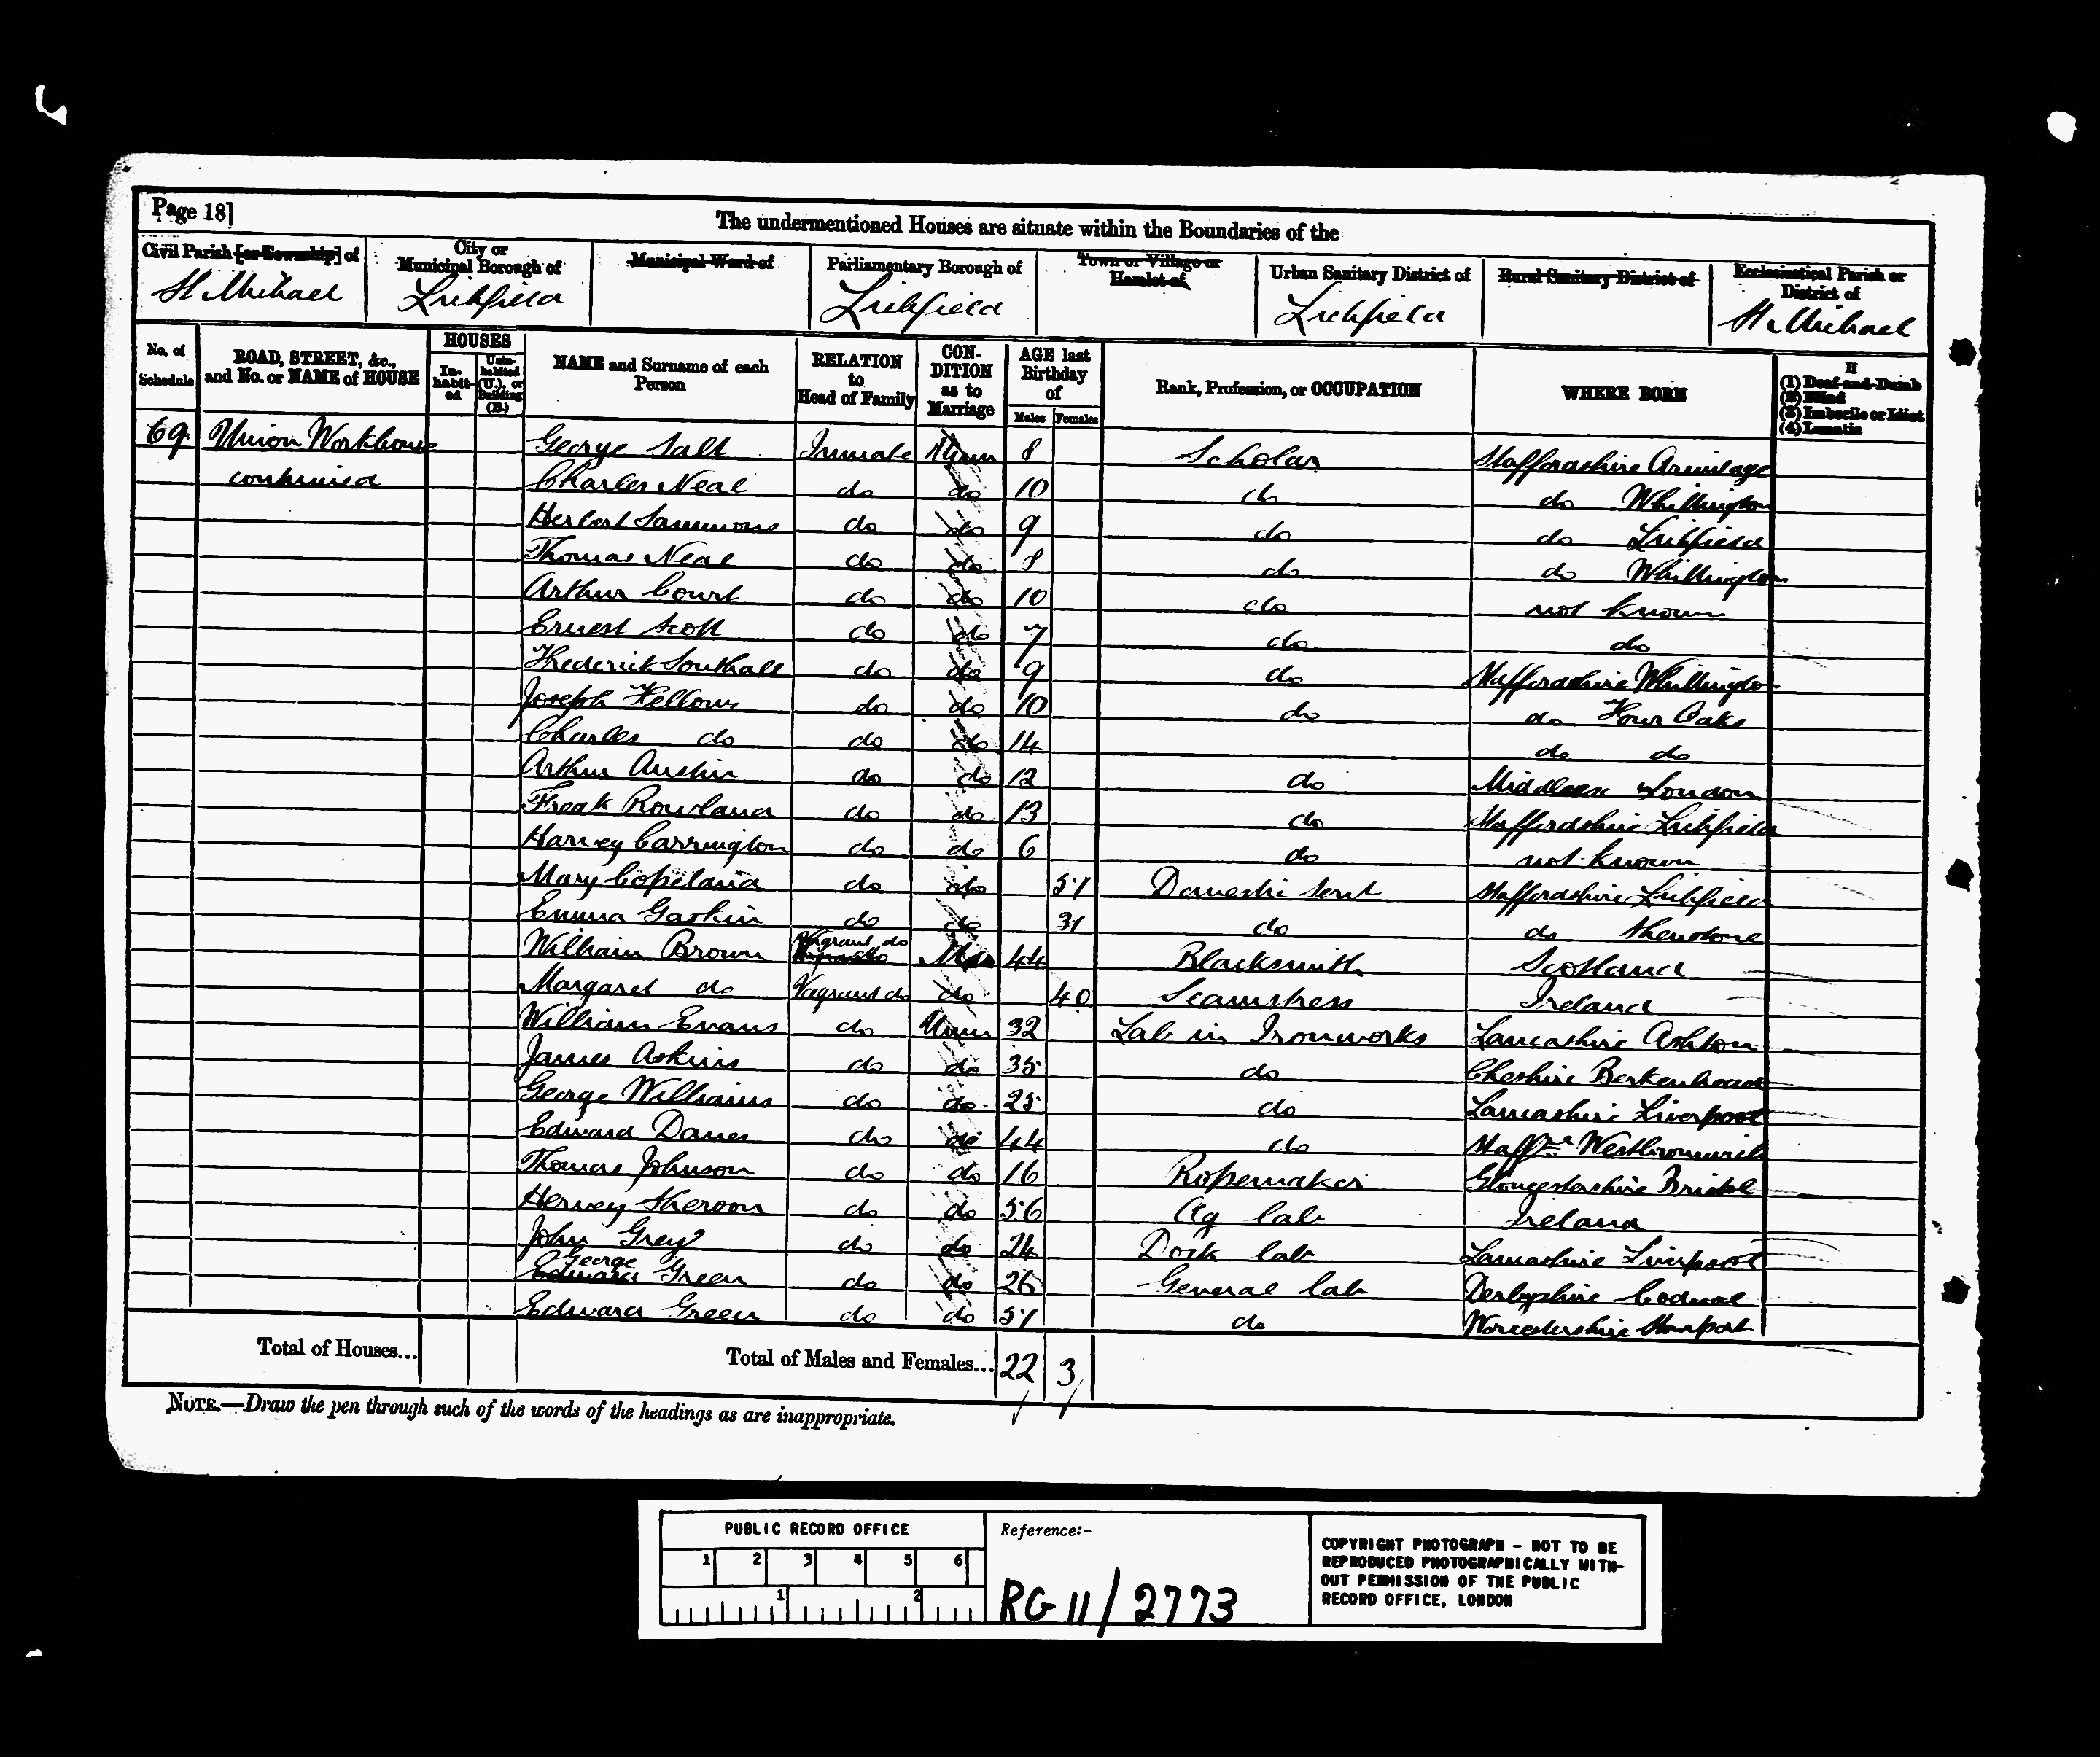 Page 18]
The undermentioned Houses are situate within the Boundaries of the
Civil Parish [or Township] of
St Michael
City or Municipal Borough of
Lichfield
Municipal Ward of
Parliamentary Borough of
Lichfield
Town or Village or Hamlet of
Urban Sanitary District of
Lichfield
Rural Sanitary District of
Ecclesiastical Parish or District of
St Michael
No. of Schedule
ROAD, STREET, &c., and No. or NAME of HOUSE
HOUSES
In-habit-ed
Unin-habited (U.), or Building (B.)
NAME and Surname of each Person
RELATION to Head of Family
CON-DITION as to Marriage
AGE last Birthday of
Males Females
Rank, Profession, or OCCUPATION
WHERE BORN
If
(1) Deaf-and-Dumb
(2) Blind
(3) Imbecile or Idiot
(4) Lunatic
69 Union Workhouse George Salt Inmate Unm 8 Scholar Staffordshire Armitage
continued Charles Neal do do 10 do do Whittington
Herbert Sammons do do 9 do do Lichfield
Thomas Neal do do 8 do do Whittington
Arthur Court do do 10 do not known
Ernest Scott do do 7 do do
Frederick Southall do do 9 do Staffordshire Whittington
Joseph Fellows do do 10 do do Four Oaks
Charles do do do 14 do do
Arthur Austin do do 12 do Middlesex London
Freak Rowland do do 13 do Staffordshire Lichfield
Harvey Carrington do do 6 do not known
Mary Copeland do do 51 Domestic Servt Staffordshire Lichfield
Emma Gaskin do do 31 do do Shenstone
William Brown Vagrant do Mar 44 Blacksmith Scotland
Margaret do Vagrant do do 40 Seamstress Ireland
William Evans do Unm 32 Lab in Ironworks Lancashire Ashton
James Askins do do 35 do Cheshire Berkenhead
George Williams do do 25 do Lancashire Liverpool
Edward Davies do do 44 do Staffre Westbromwich
Thomas Johnson do do 16 Ropemaker Gloucestershire Bristol
Hervey Sheroon do do 56 Ag lab Ireland
John Grey do do 24 Dock lab Lancashire Liverpool
George
Edward Green do do 26 General lab Derbyshire Codnor
Edward Green do do 51 do Worcestershire Stourport
Total of Houses... Total of Males and Females... 22 3
NOTE.—Draw the pen through such of the words of the headings as are inappropriate.
PUBLIC RECORD OFFICE
1 2 3 4 5 6
1 2
Reference:-
RG 11/2773
COPYRIGHT PHOTOGRAPH - NOT TO BE
REPRODUCED PHOTOGRAPHICALLY WITH-
OUT PERMISSION OF THE PUBLIC
RECORD OFFICE, LONDON